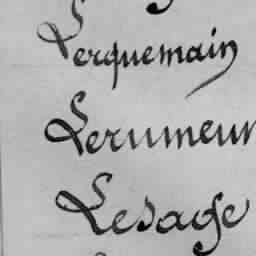 Lerquemain
Lerumeur
Lesage